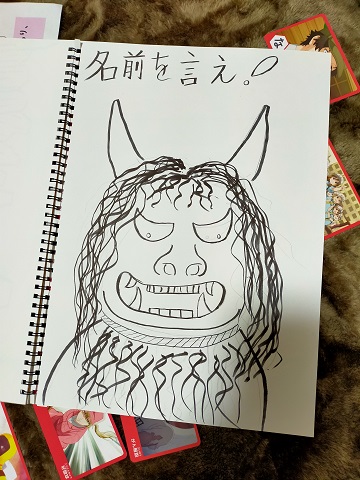 名前を言え!
な